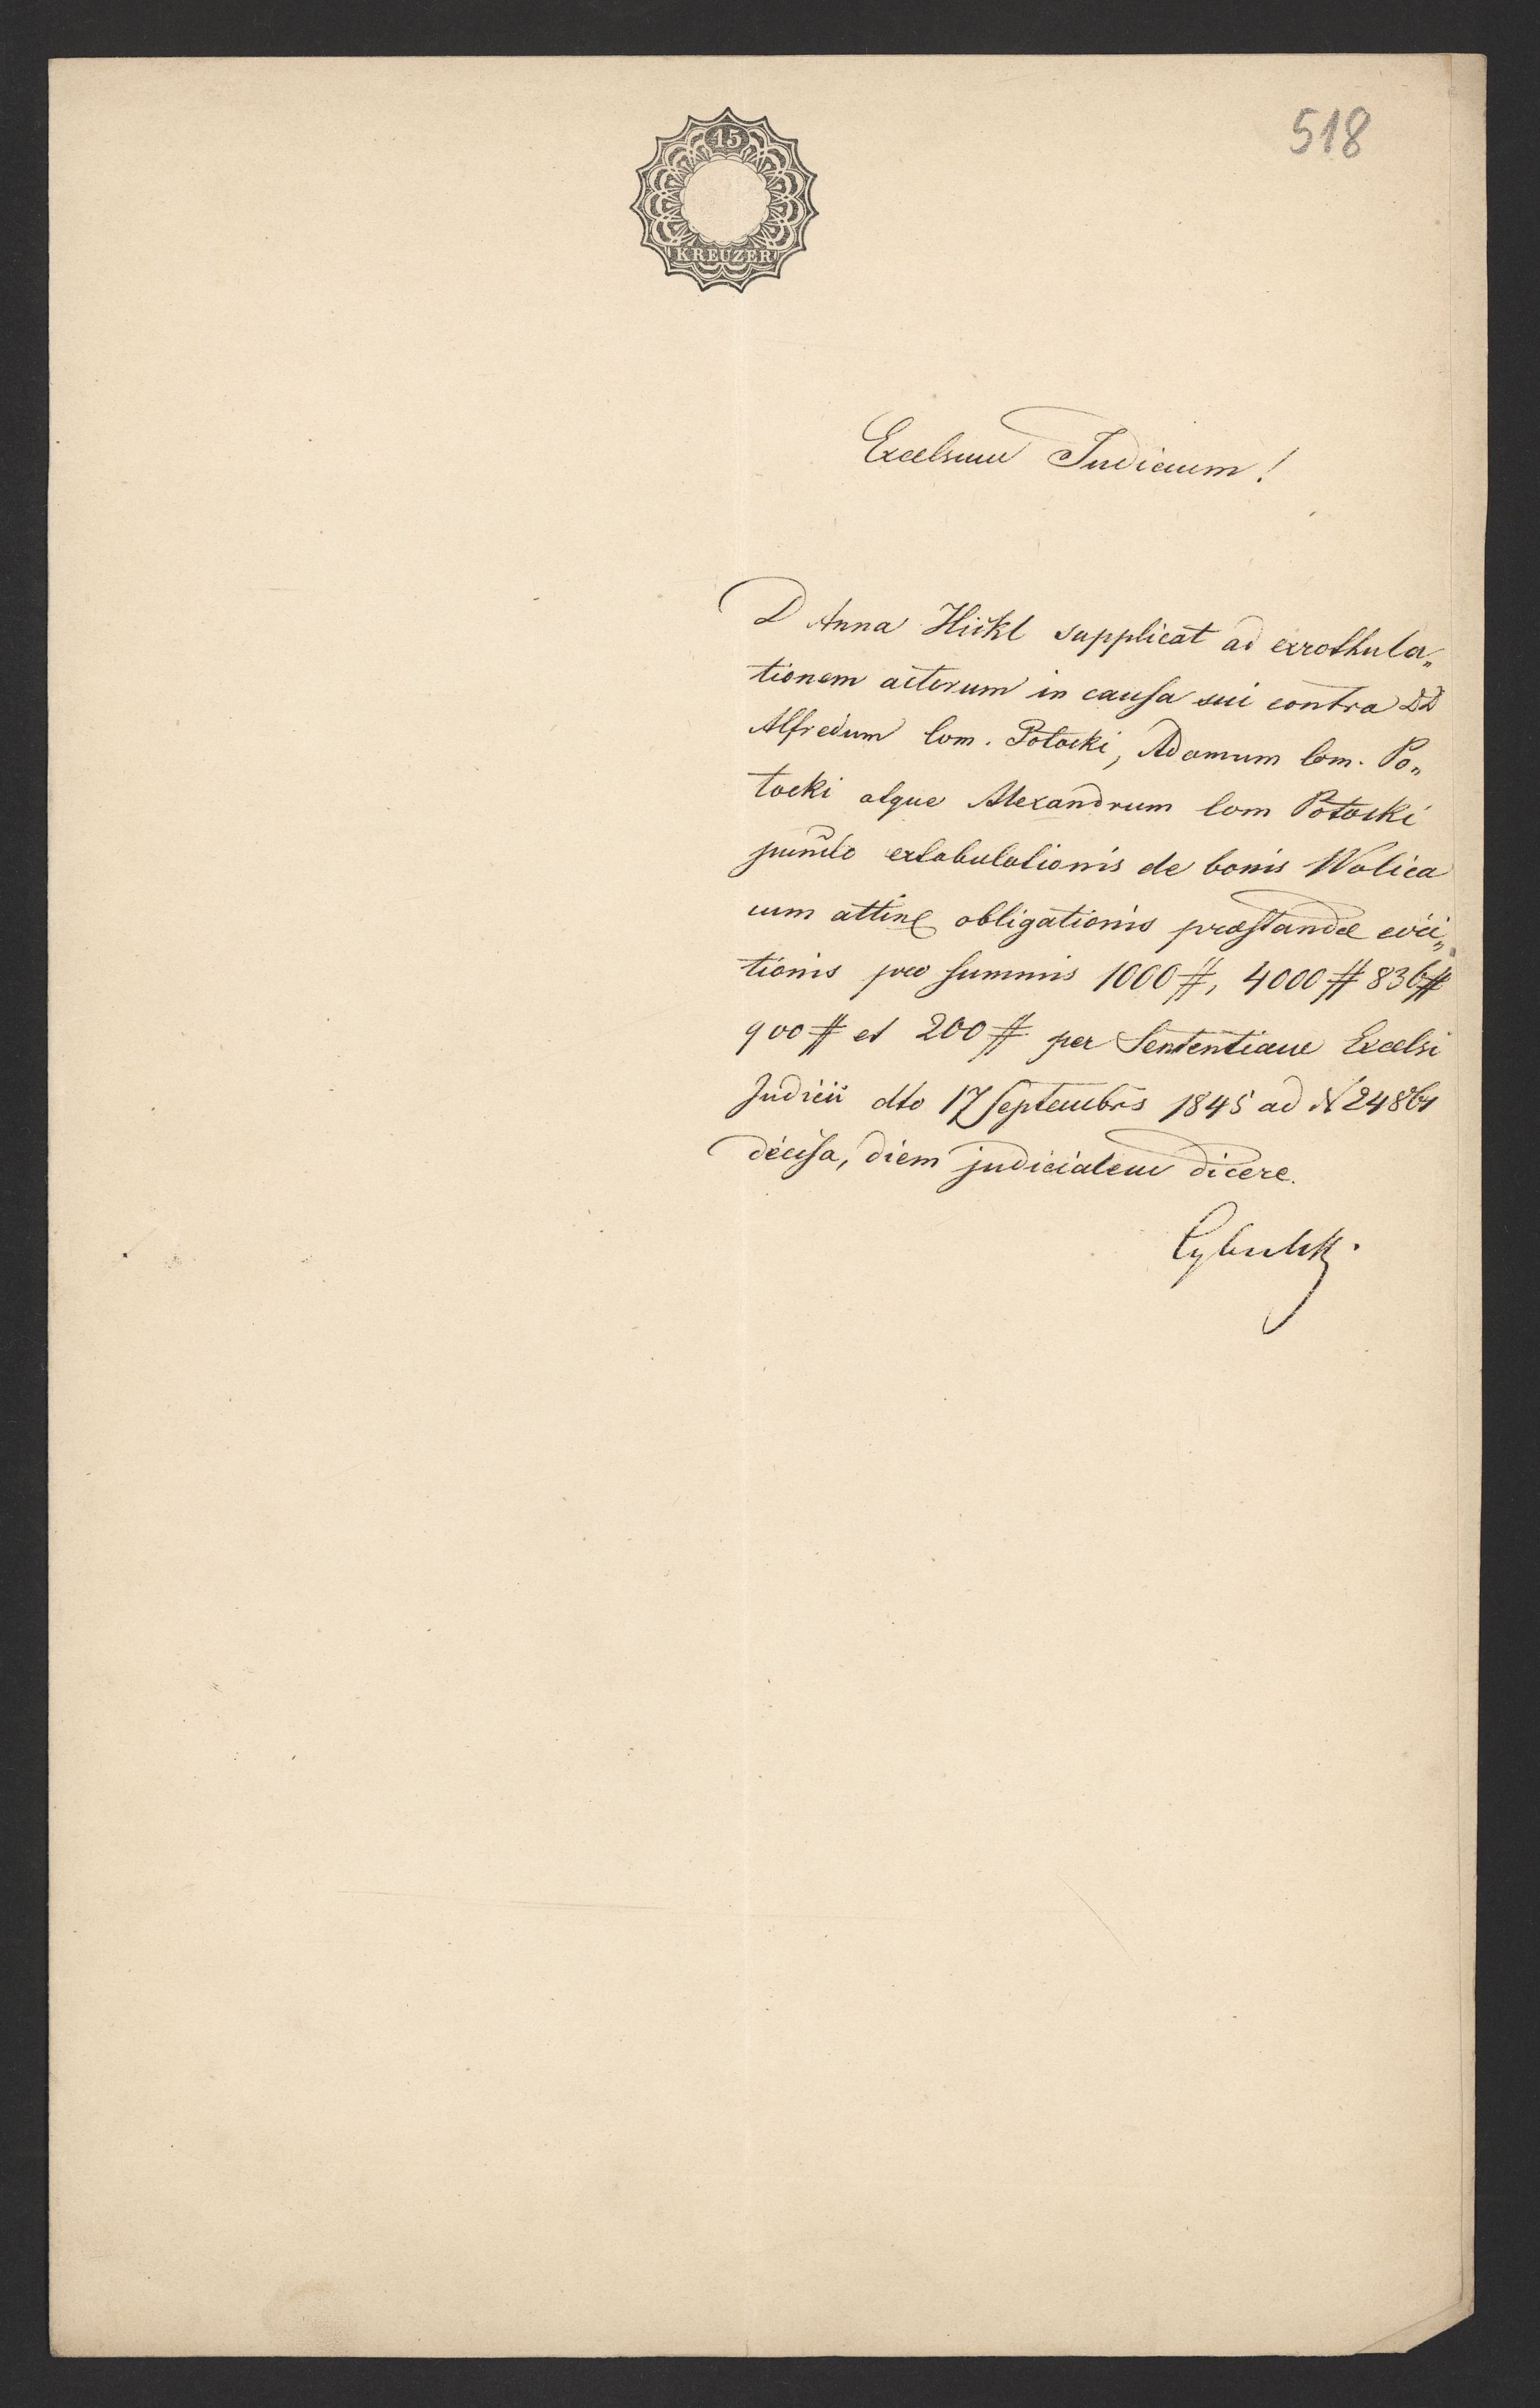 518
15
KREUZER
Excelsum Judicium!
D Anna Hickl supplicat ad exrothula„
tionem actorum in causa sui contra DD
Alfredum Com. Potocki, Adamum Com. Po„
tocki atque Alexandrum Com Potocki
puncto extabulationis de bonis Wolica
cum attin obligationis præstandæ evic„
tionis pro summis 1000 #, 4000 # 836 #
900 # et 200 # per Sententiam Excelsi
Judicii dto 17 Septembris 1845 ad N 24864
decisa, diem judicialem dicere.
Cybulski